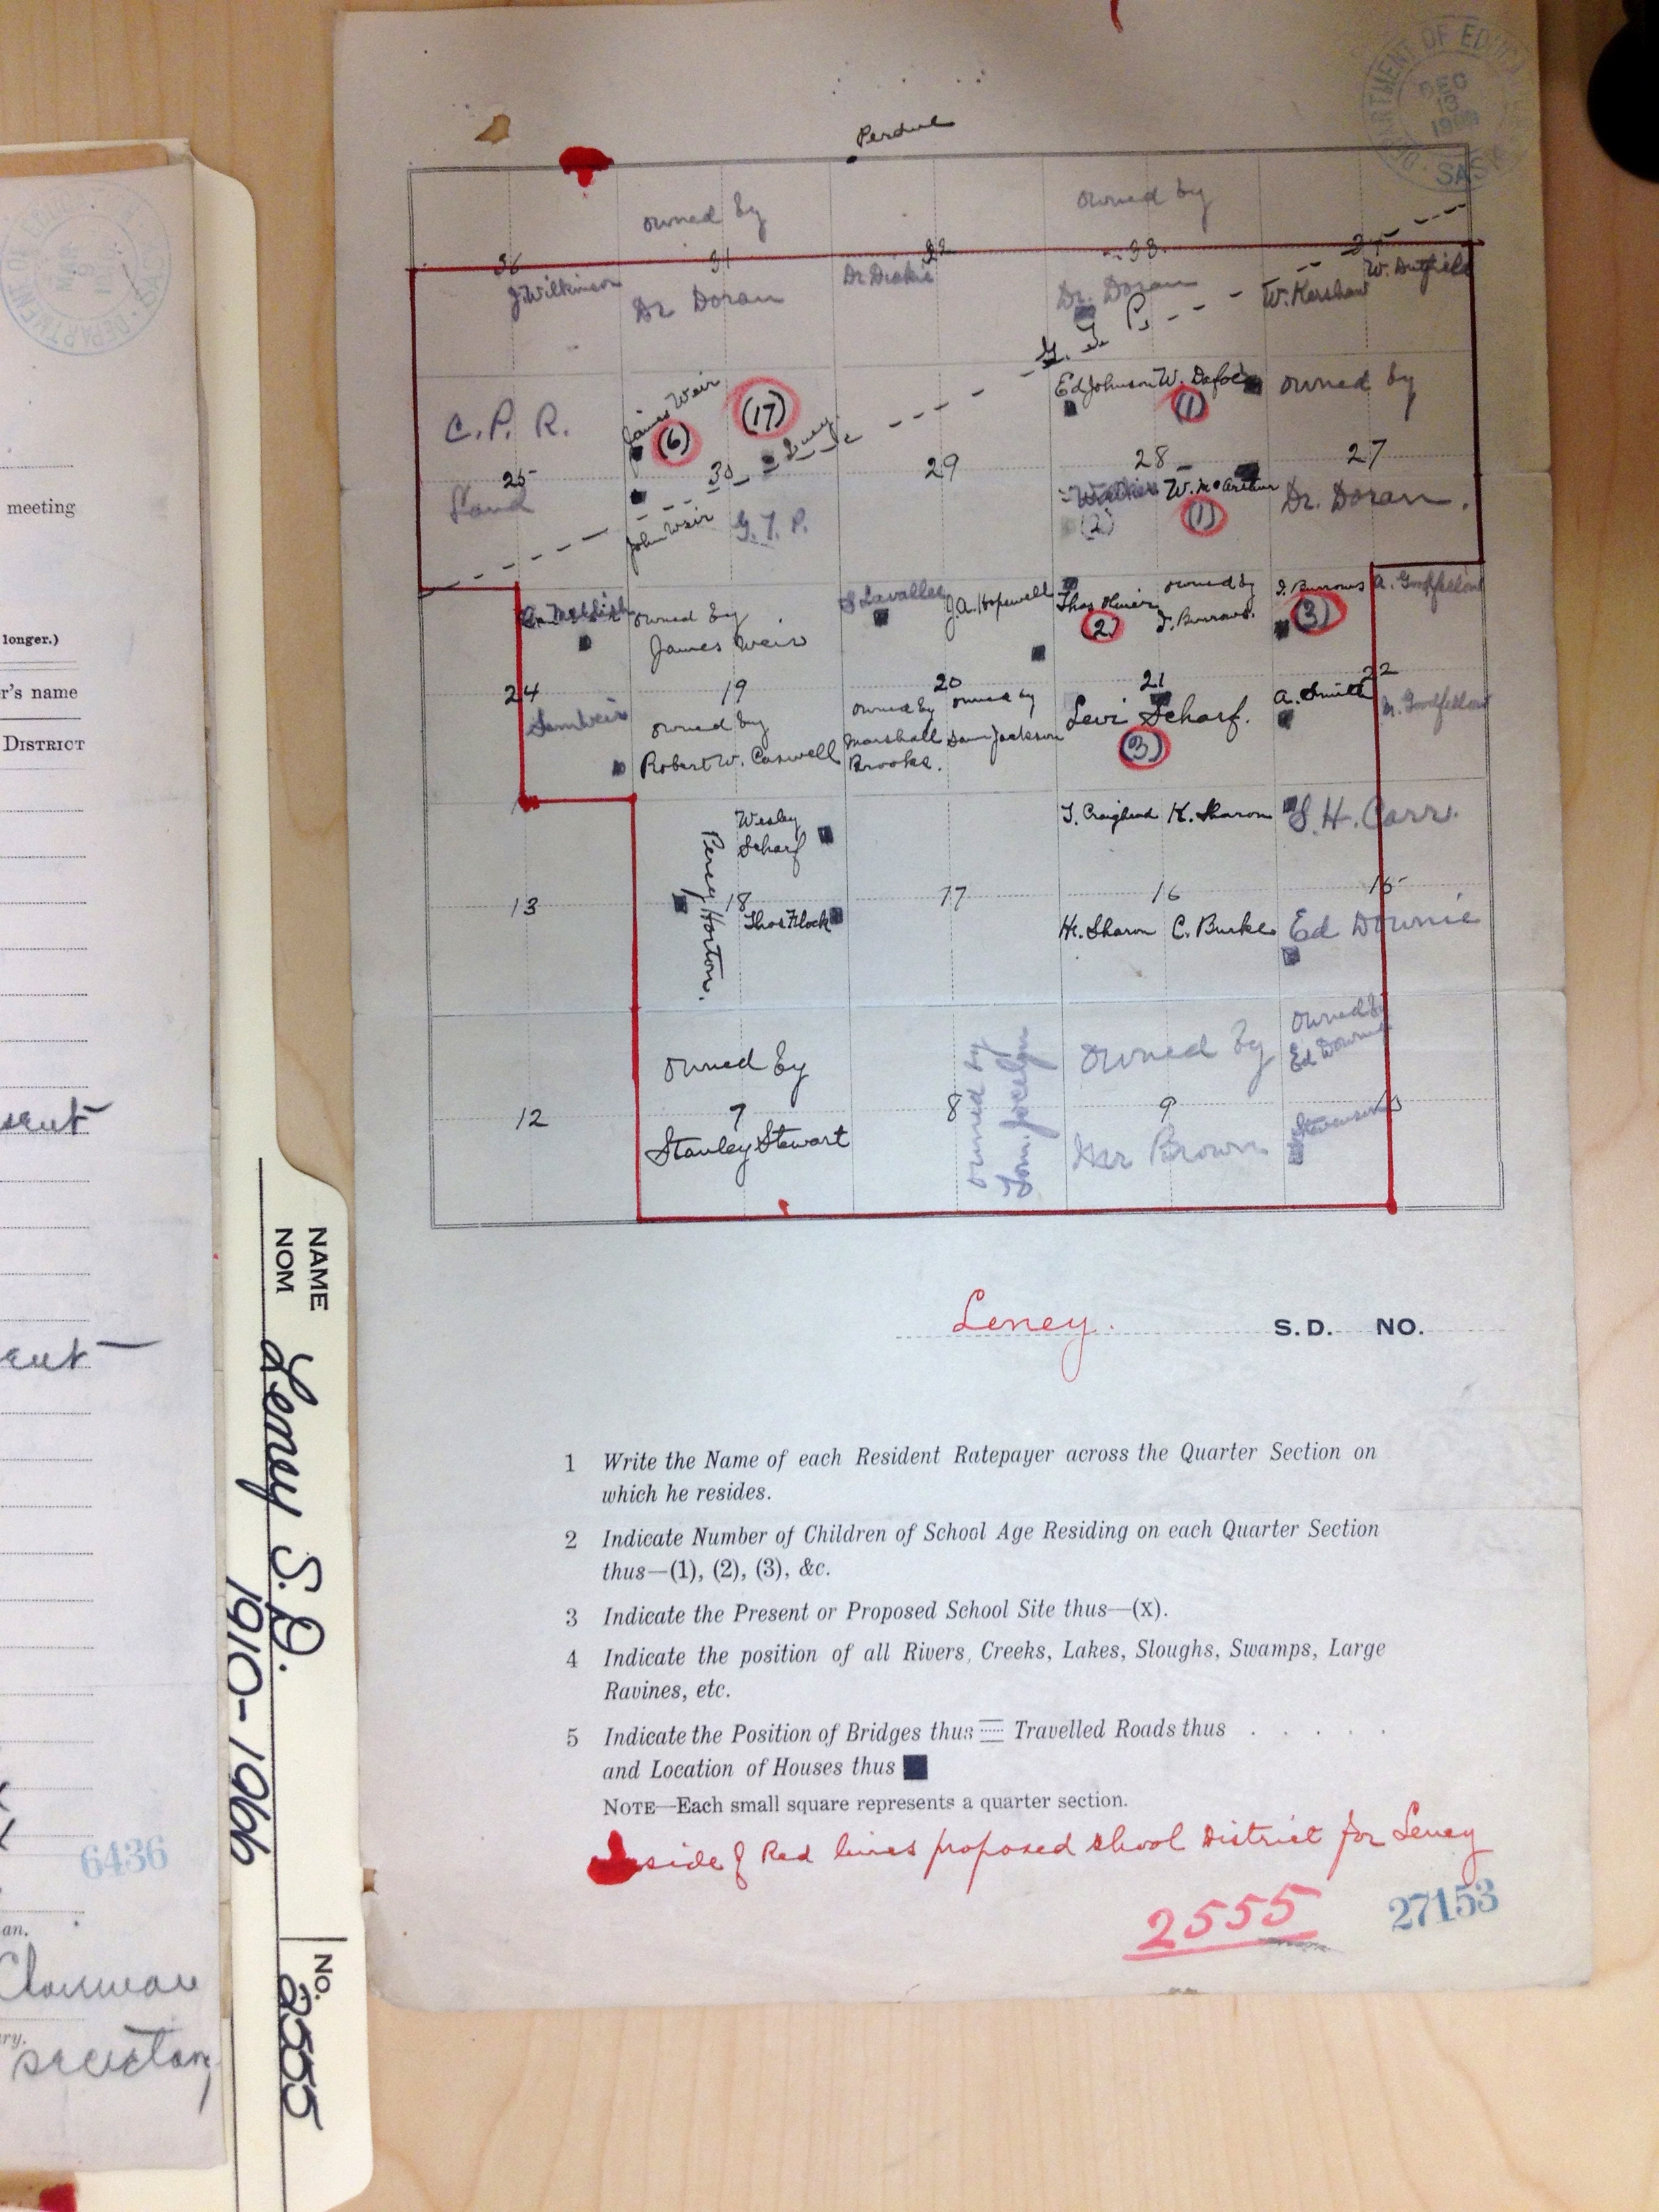 DEPARTMENT OF EDUCATION
DEC
13
1909
SASK
Perdue
owned by
owned by
36
31
32
33
34
J. Wilkinson
Dr Doran
Dr. Doran
W. Kershaw
G. T. P.
James Weir
(6)
(17)
Leney
Ed Johnson
W. Dafoe
(1)
owned by
C. P. R.
25
30
29
28
27
Land
John Weir
G. T. P.
(2)
W. McArthur
(1)
Dr. Doran.
owned by
James Weir
Lavallee
J. A. Hopewell
(2)
owned by
J. Burrows.
J. Burrows
(3)
A. Goodfellow
24
19
20
21
22
Sam Weir
owned by
Robert W. Caswell
owned by
Marshall
Brooke.
owned by
Sam Jackson
Levi Scharf.
(3)
A. Smith
A. Goodfellow
Wesley
Scharf
Percy Horton.
T. Craighead
K. Sharon
S. H. Carr.
13
18
17
16
15
Thos Flock
H. Sharon
C. Burke
Ed Downie
owned by
owned by
Tom. Jocelyn
owned by
owned by
Ed Downie
12
7
8
9
Stanley Stewart
Mr Brown
Stevenson
Leney. S.D. NO.
1 Write the Name of each Resident Ratepayer across the Quarter Section on
which he resides.
2 Indicate Number of Children of School Age Residing on each Quarter Section
thus—(1), (2), (3), &c.
3 Indicate the Present or Proposed School Site thus—(x).
4 Indicate the position of all Rivers, Creeks, Lakes, Sloughs, Swamps, Large
Ravines, etc.
5 Indicate the Position of Bridges thus Travelled Roads thus . . . . .
and Location of Houses thus
NOTE—Each small square represents a quarter section.
side of Red lines proposed shool District for Leney
2555
27153
NAME
NOM
Leney S.D.
1910-1966
NO.
2555
meeting
longer.)
r's name
DISTRICT
6436
an.
Chairman
ry.
secretary